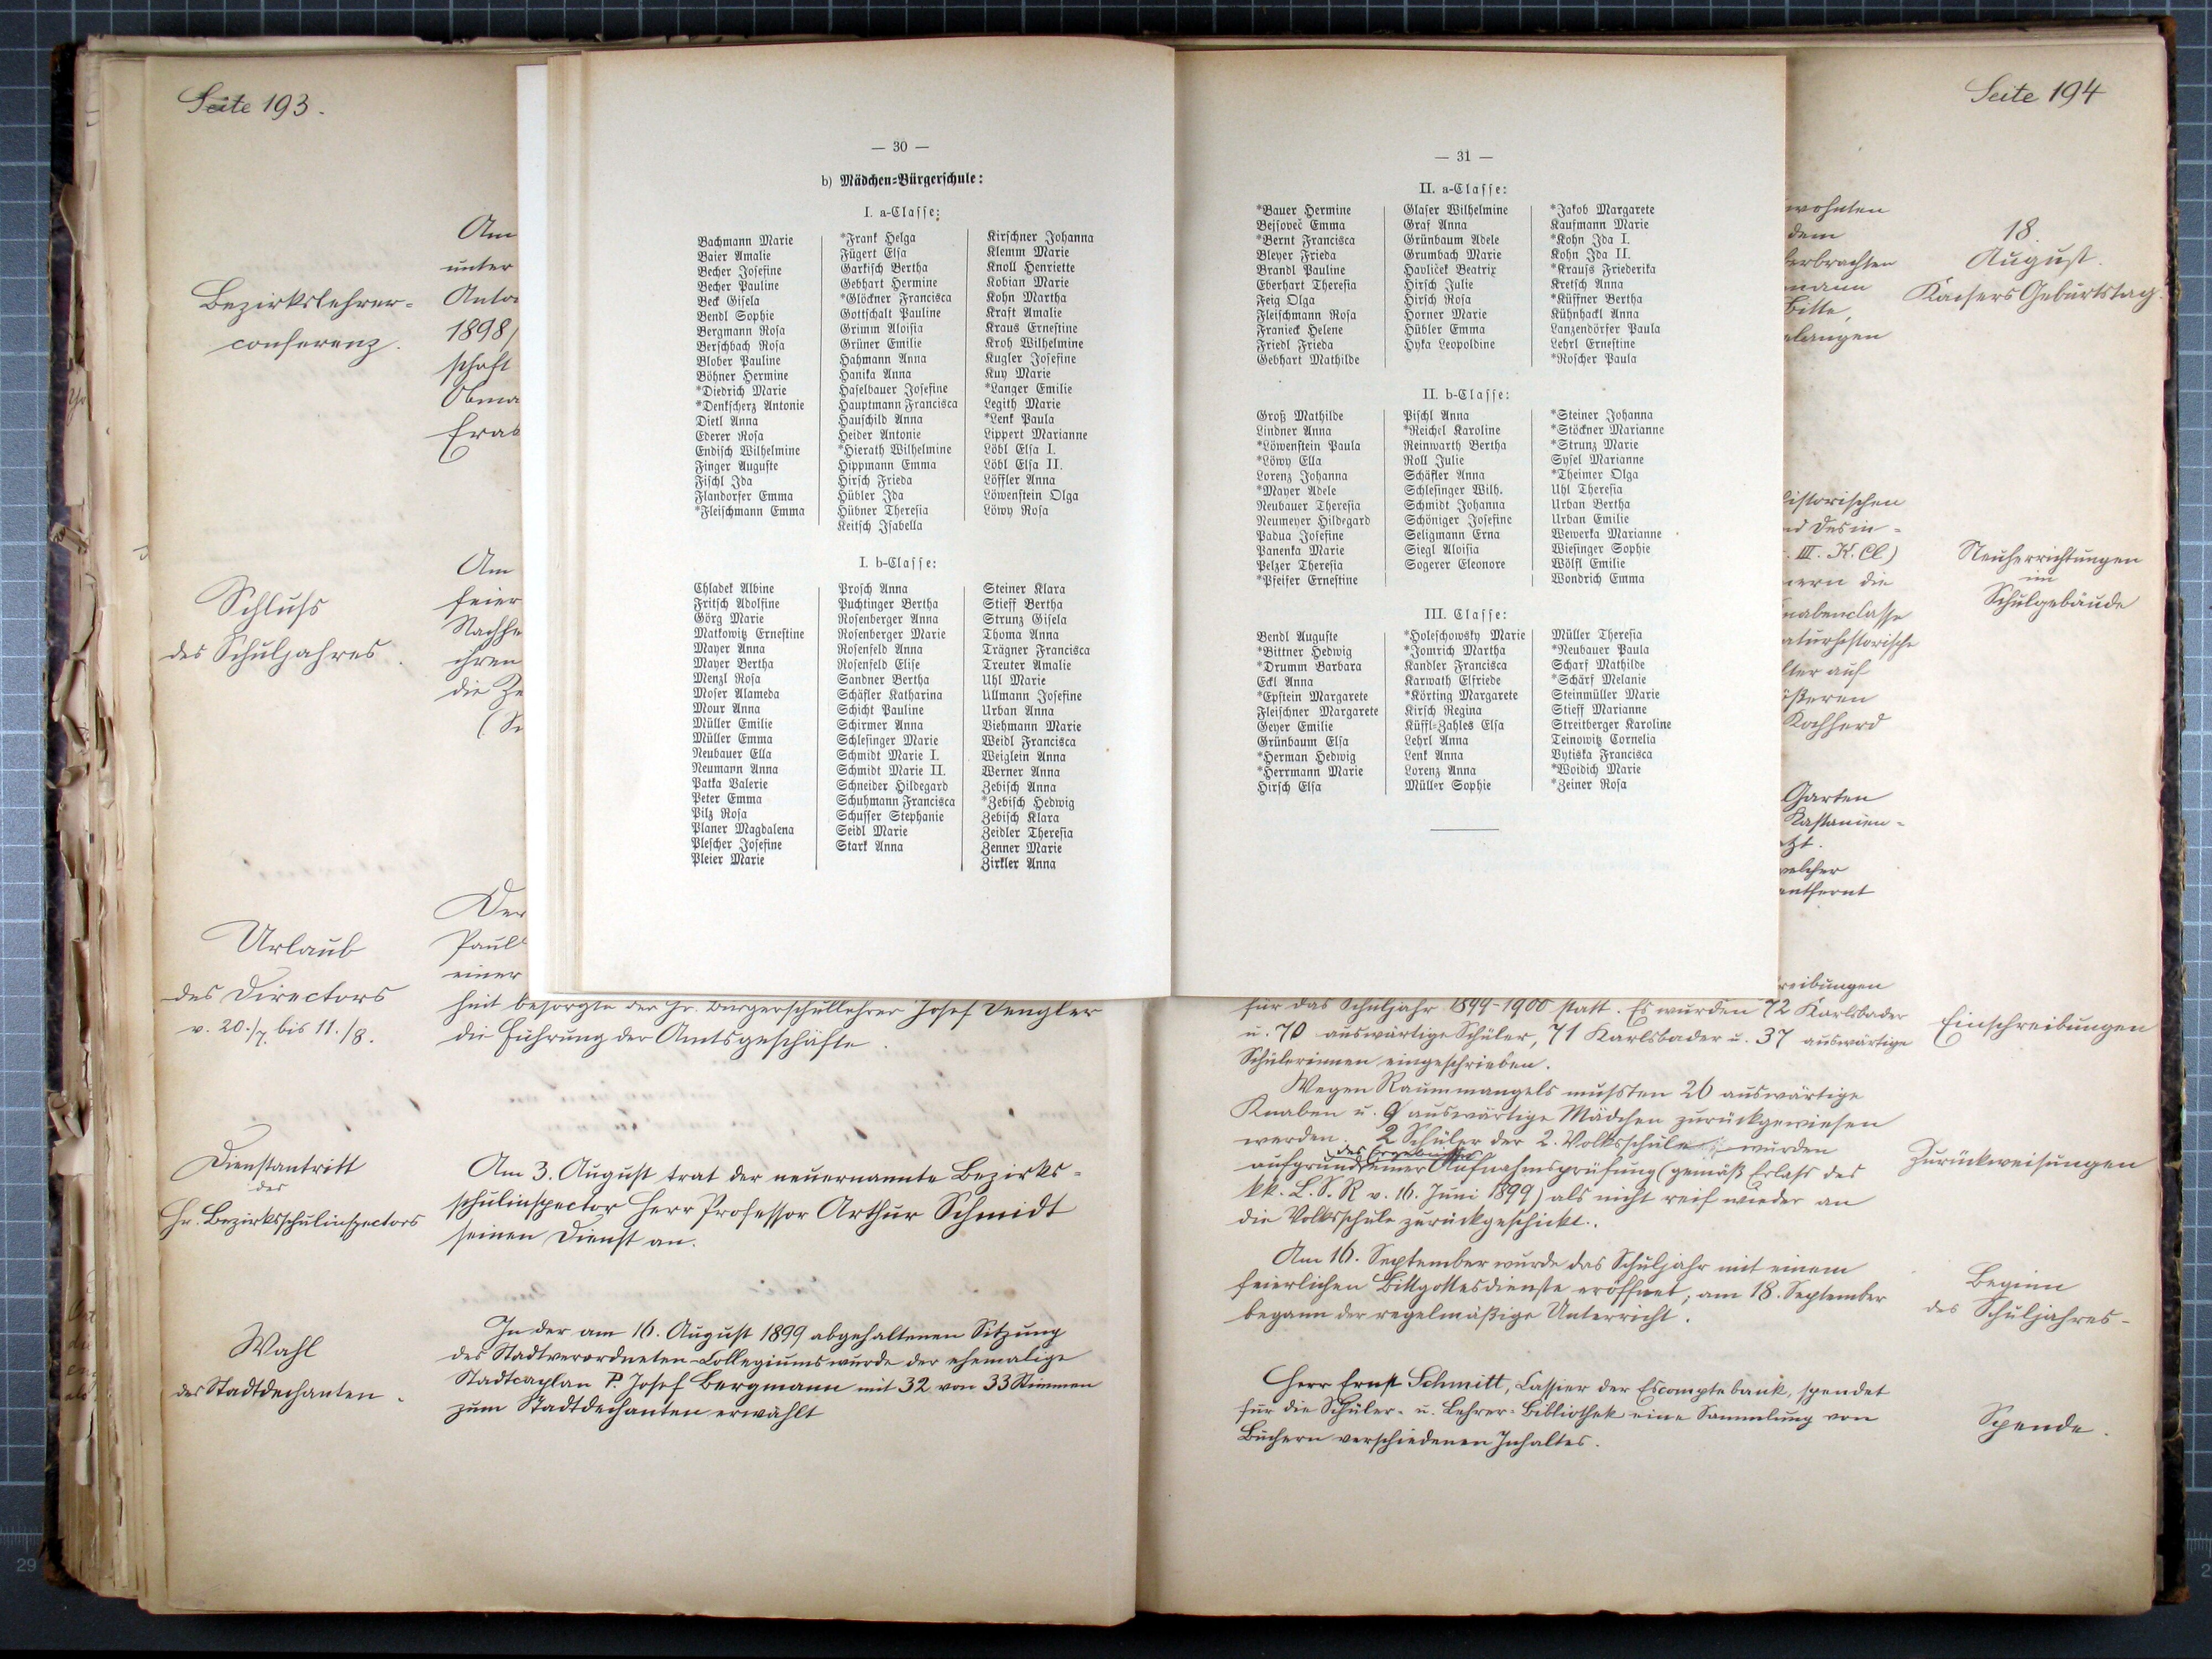 Seite 193.
Bezirkslehrer-
conferenz.
Am
unter
Anto
1898
schaft
Obma
Schluss
des Schuljahres.
Am
feier
Nachhe
ihren
die Ze
Urlaub
des Directors
v. 20./7. bis 11./8.
Der
Paul
einer
heit besorgte der Hr. Bürgerschullehrer Josef Dengler
die Führung der Amtsgeschäfte.
Dienstantritt
des
Hr. Bezirksschulinspectors
Am 3. August trat der neuernannte Bezirks-
schulinspector Herr Professor Arthur Schmidt
seinen Dienst an.
Wahl
des Stadtdechanten.
In der am 16. August 1899 abgehaltenen Sitzung
des Stadtverordneten-Collegiums wurde der ehemalige
Stadtcaplan P. Josef Bergmann mit 32 von 33 Stimmen
zum Stadtdechanten erwählt
— 30 —
b) Mädchen-Bürgerschule:
I. a-Classe:
Bachmann Marie
Baier Amalie
Becher Josefine
Becher Pauline
Beck Gisela
Bendl Sophie
Bergmann Rosa
Berschbach Rosa
Bloher Pauline
Böhner Hermine
*Diedrich Marie
*Denkscherz Antonie
Dietl Anna
Ederer Rosa
Endisch Wilhelmine
Finger Auguste
Fischl Ida
Flandorfer Emma
*Fleischmann Emma
*Frank Helga
Fügert Elsa
Garkisch Bertha
Gebhart Hermine
*Glöckner Francisca
Gottschalk Pauline
Grimm Aloisia
Grüner Emilie
Hahmann Anna
Hanika Anna
Haselbauer Josefine
Hauptmann Francisca
Hauschild Anna
Heider Antonie
*Hierath Wilhelmine
Hippmann Emma
Hirsch Frieda
Hübler Ida
Hübner Theresia
Keitsch Isabella
Kirschner Johanna
Klemm Marie
Knoll Henriette
Kobian Marie
Kohn Martha
Kraft Amalie
Kraus Ernestine
Kroh Wilhelmine
Kugler Josefine
Kuy Marie
*Langer Emilie
Legith Marie
*Lenk Paula
Lippert Marianne
Löbl Elsa I.
Löbl Elsa II.
Löffler Anna
Löwenstein Olga
Löwy Rosa
I. b-Classe:
Chladek Albine
Fritsch Adolfine
Görg Marie
Matkowitz Ernestine
Mayer Anna
Mayer Bertha
Menzl Rosa
Moser Alameda
Mour Anna
Müller Emilie
Müller Emma
Neubauer Ella
Neumann Anna
Patka Valerie
Peter Emma
Pilz Rosa
Planer Magdalena
Plescher Josefine
Pleier Marie
Prosch Anna
Puchtinger Bertha
Rosenberger Anna
Rosenberger Marie
Rosenfeld Anna
Rosenfeld Elise
Sandner Bertha
Schäfler Katharina
Schicht Pauline
Schirmer Anna
Schlesinger Marie
Schmidt Marie I.
Schmidt Marie II.
Schneider Hildegard
Schuhmann Francisca
Schusser Stephanie
Seidl Marie
Stark Anna
Steiner Klara
Stieff Bertha
Strunz Gisela
Thoma Anna
Trägner Francisca
Treuter Amalie
Uhl Marie
Ullmann Josefine
Urban Anna
Viehmann Marie
Weidl Francisca
Weiglein Anna
Werner Anna
Zebisch Anna
*Zebisch Hedwig
Zebisch Klara
Zeidler Theresia
Zenner Marie
Zirkler Anna
— 31 —
II. a-Classe:
*Bauer Hermine
Bejšoveč Emma
*Bernt Francisca
Bleyer Frieda
Brandl Pauline
Eberhart Theresia
Feig Olga
Fleischmann Rosa
Franieck Helene
Friedl Frieda
Gebhart Mathilde
Glaser Wilhelmine
Graf Anna
Grünbaum Adele
Grumbach Marie
Havlíček Beatrix
Hirsch Julie
Hirsch Rosa
Horner Marie
Hübler Emma
Hyka Leopoldine
*Jakob Margarete
Kaufmann Marie
*Kohn Ida I.
Kohn Ida II.
*Krauss Friederika
Kretsch Anna
*Küffner Bertha
Kühnhackl Anna
Lanzendörfer Paula
Lehrl Ernestine
*Roscher Paula
II. b-Classe:
Groß Mathilde
Lindner Anna
*Löwenstein Paula
*Löwy Ella
Lorenz Johanna
*Mayer Adele
Neubauer Theresia
Neumeyer Hildegard
Padua Josefine
Panenka Marie
Pelzer Theresia
*Pfeifer Ernestine
Pischl Anna
*Reichel Karoline
Reinwarth Bertha
Roll Julie
Schäfler Anna
Schlesinger Wilh.
Schmidt Johanna
Schöniger Josefine
Seligmann Erna
Siegl Aloisia
Sogerer Eleonore
*Steiner Johanna
*Stöckner Marianne
*Strunz Marie
Sysel Marianne
*Theimer Olga
Uhl Theresia
Urban Bertha
Urban Emilie
Wewerka Marianne
Wiesinger Sophie
Wölfl Emilie
Wondrich Emma
III. Classe:
Bendl Auguste
*Bittner Hedwig
*Drumm Barbara
Eckl Anna
*Epstein Margarete
Fleischner Margarete
Geyer Emilie
Grünbaum Elsa
*Herman Hedwig
*Herrmann Marie
Hirsch Elsa
*Holeschowsky Marie
*Jomrich Martha
Kandler Francisca
Karwath Elfriede
*Körting Margarete
Kirsch Regina
Küffl-Zahles Elsa
Lehrl Anna
Lenk Anna
Lorenz Anna
Müller Sophie
Müller Theresia
*Neubauer Paula
Scharf Mathilde
*Schärf Melanie
Steinmüller Marie
Stieff Marianne
Streitberger Karoline
Teinowitz Cornelia
Vytiska Francisca
*Woidich Marie
*Zeiner Rosa
Seite 194
wohnten
dem
erbrachten
mann
Bitte,
elangen
18.
August.
Kaisers Geburtstag.
historischen
III. K. Cl.)
ern die
nabenclasse
aturhistorische
ter auf
Kochherd
Neuherrichtungen
im
Schulgebäude
Garten
Kastanien-
welcher
entfernt
reibungen
für das Schuljahr 1899-1900 statt. Es wurden 72 Karlsbader
u. 70 auswärtige Schüler, 71 Karlsbader u. 37 auswärtige
Schülerinnen eingeschrieben.
Einschreibungen
Wegen Raummangels mußten 26 auswärtige
Knaben u. 9 auswärtige Mädchen zurückgewiesen
werden. 2 Schüler der 2. Volksschule wurden
aufgrund des Ergebnisses einer Aufnahmsprüfung (gemäß Erlass des
kk. L. S. R v. 16. Juni 1899) als nicht reif wieder an
die Volksschule zurückgeschickt.
Zurückweisungen
Am 16. September wurde das Schuljahr mit einem
feierlichen Bittgottesdienste eröffnet; am 18. September
begann der regelmäßige Unterricht.
Beginn
des Schuljahres-
Herr Ernst Schmitt, Cassier der Escomptebank, spendet
für die Schüler- u. Lehrer-Bibliothek eine Sammlung von
Büchern verschiedenen Inhaltes.
Spende.
29